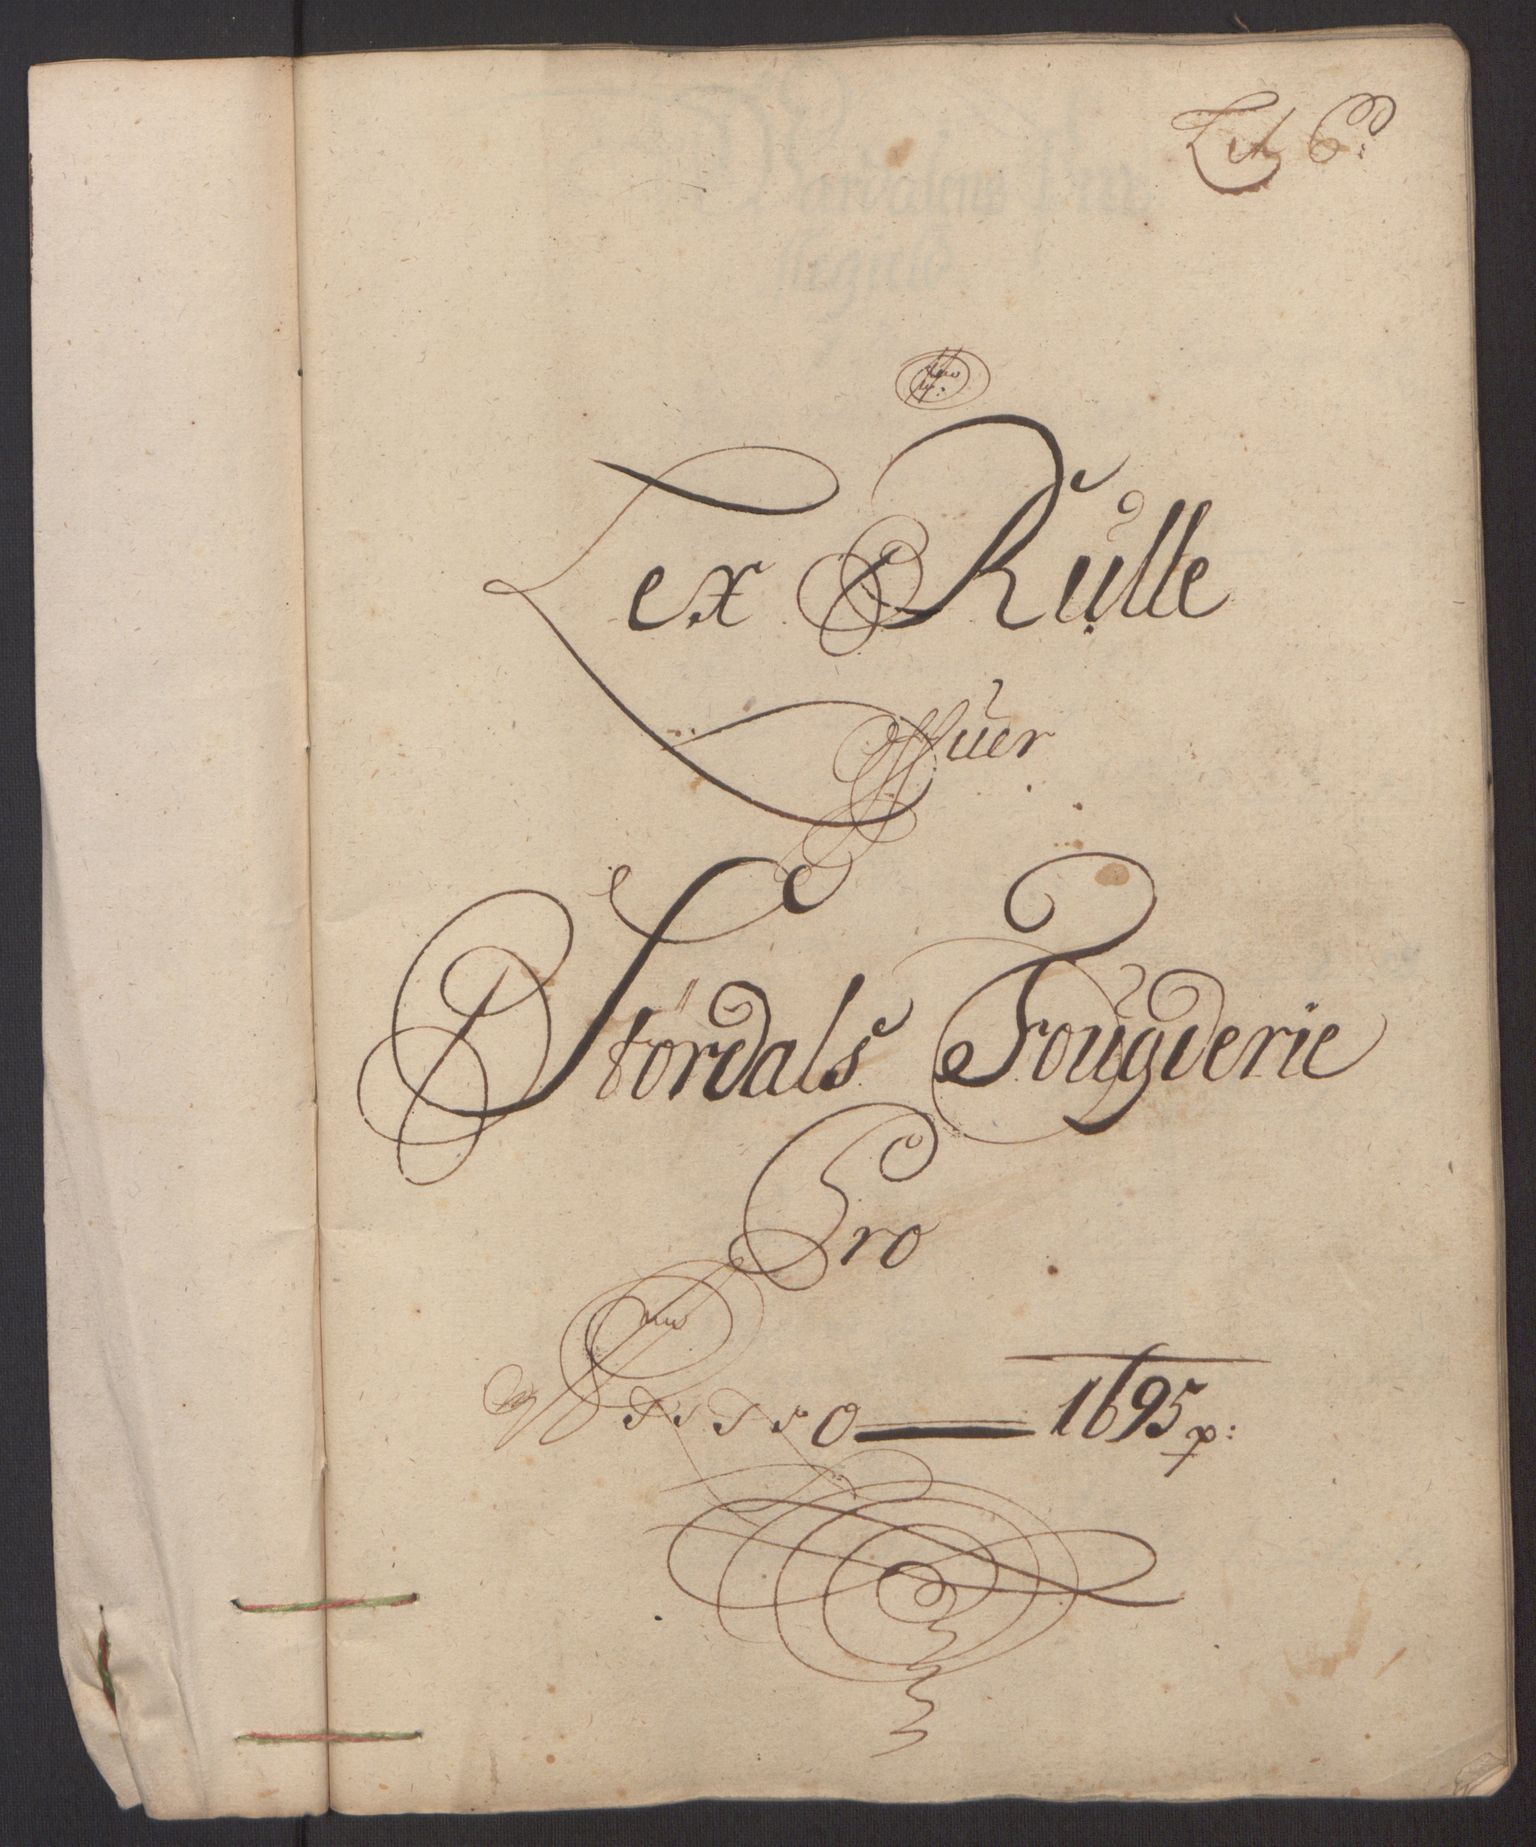 Lit C:
Lex Rülle
Offuer
Størdals Fougderie
Pro
Anno 1695 p: